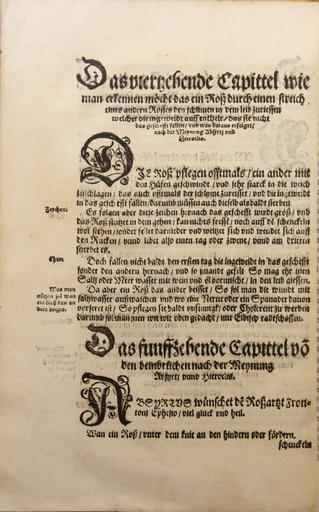 Das viertzehende Capittel wie
man erkennen möcht das ein Roß durch einen streich
eines andern Rosses den schlauch in dem leib zurissen
welcher die ingeweidt auffenthelt / das sie nicht
das geschefft fallen / und was daraus erfolget /
nach der Meynung Absyrti und
Hieroclis.
DJe Roß pflegen offtmals / ein ander mit
den Hüfen geschwindt / und sehr starck in die weich
zuschlagen / das auch offtmals der schlauch zureisset / und die ingeweidt in
das geschefft fallen / darumb müssen auch dieselb als baldt sterben
Zeychen:
Es folgen aber diese zeichen hernach das geschefft wirdt groß / und
das Roß zittert in dem gehen / kan nichts fresse / noch auff de schenckeln
wol stehen / sonder felt darnider und weltzet sich und wendet sich auff
den Rucken / vnnd libet also einen tag oder zwene / vnnd am dritten
stirbet es.
Chur.
Doch fallen nicht baldt den ersten tag die ingeweidt in das geschefft
sonder den andern hernach / und so jmandt gefelt So mag eht jhm
Saltz oder Meer wasser mit wein und öl vormischt / in den leib giessen.
Was man
nützen sol wan
ein Roß das an
dere beisset.
Da aber ein Roß das ander beisset / So sol man die wundt mit
saltzwasser auswaschen und wo eine Nerue oder ein Spanader dauon
vorseret ist / So pflegen sie baldt vnsinnigk / oder Cholerent zu werden
darumb sol man jnen wie wir oben gedacht / mit Eibisch radtschaffen.
Das funffzehende Capittel võ
den beinbrüchen nach der Meynung
Absyrti, vnnd Hieroclis.
ABSYRTUS wünschet de Roßartzt Fron-
toni Ephesio / viel glück und heil.
Wan ein Roß / vnter dem knie an den hindern oder fördern
schenckeln